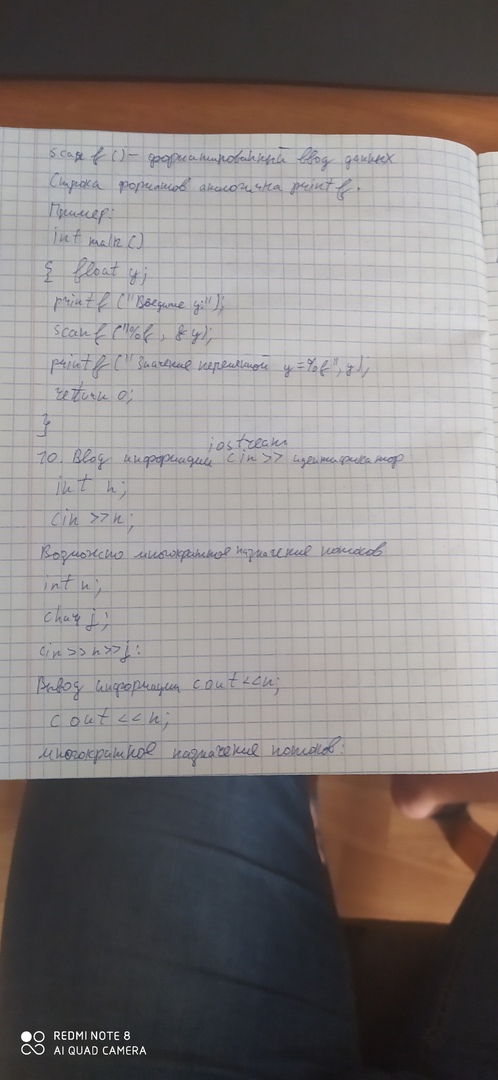 scanf () - форматированный ввод данных
Строка форматов аналогична printf.
Пример:
int main ()
{ float y;
printf ("Введите y:");
scanf ("%f, &y);
printf ("Значение переменной y=%f", y);
return 0;
}
iostream
10. Ввод информации cin >> идентификатор
int n;
cin >> n;
Возможно многократное назначение потоков
int n;
char j;
cin >> n >> j:
Вывод информации cout << n;
cout << n;
многократное назначение потоков:
REDMI NOTE 8
AI QUAD CAMERA